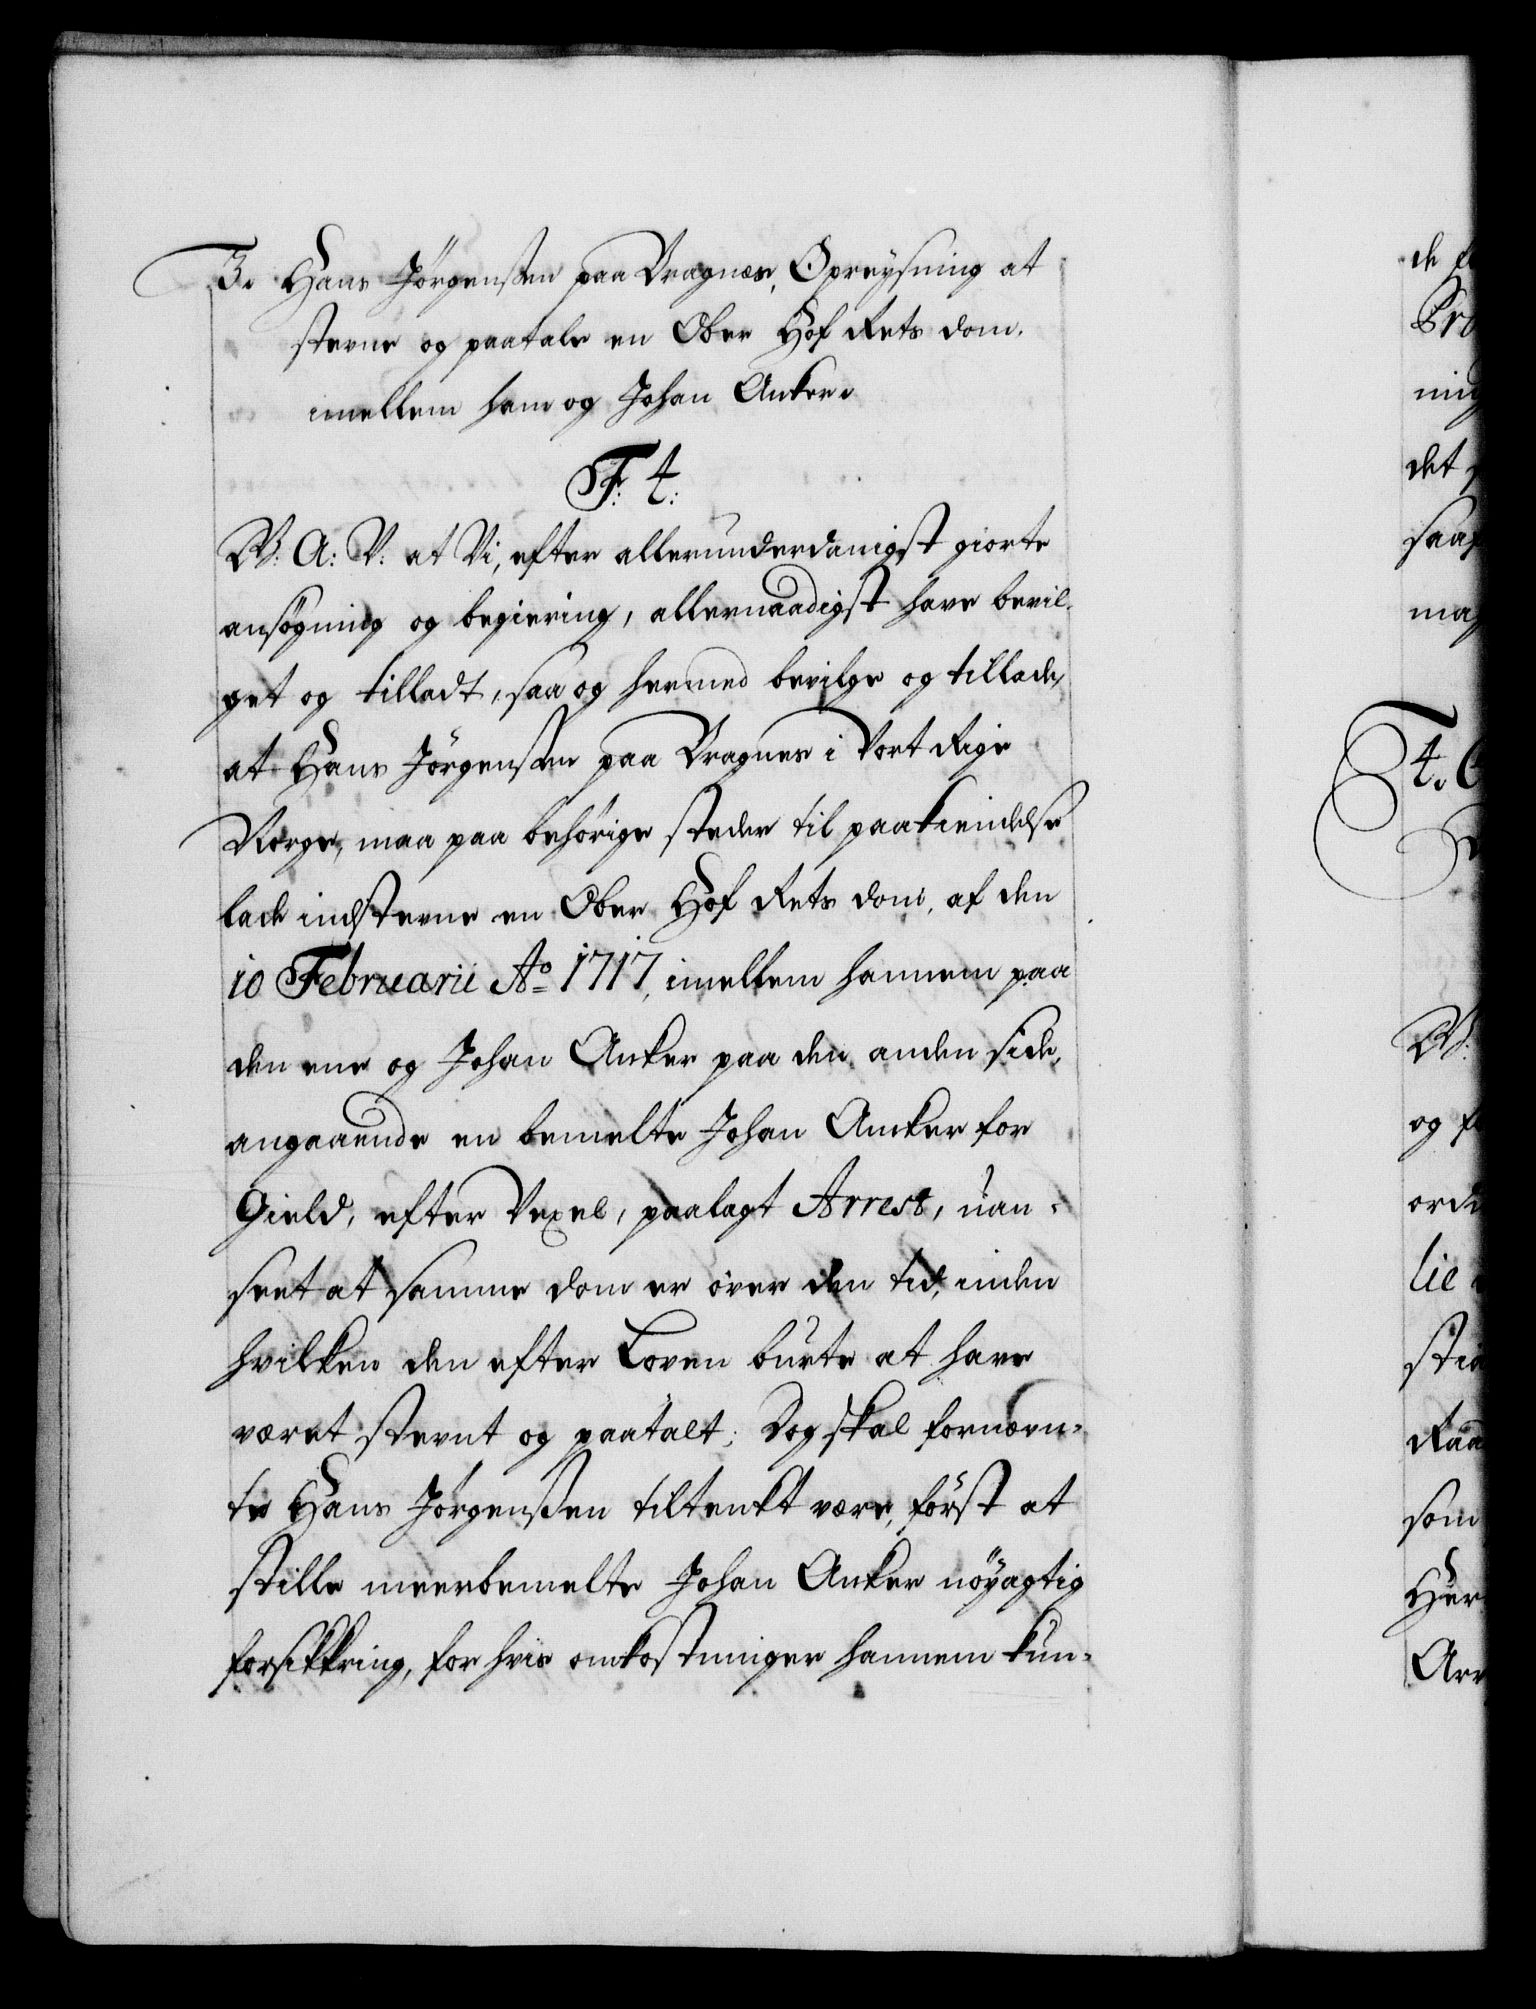 3. Hans Jörgenssen paa Bragnæs, Opreysning at
stevne og paatale en Ober Hof Rets dom,
imellem ham og Johan Anker.
F: 4:
W: A: V: at Vi, efter allerunderdanigst giorte
ansögning og begiering, allernaadigst have bevil-
get og tilladt, saa og hermed bevilge og tillade,
at Hans Jörgenssen paa Bragnes i Vort Rige
Norge, maa paa behörige steder til paakiendelse
lade indstevne en Ober Hof Rets dom, af den
10 Februarii Ao 1717, imellem hannem paa
den ene og Johan Anker paa den anden side,
angaaende en bemelte Johan Ancker for
Gield, efter Vexel, paalagt Arrest, uan-
seet at samme dom er over den tid, inden
hvilken den efter Loven burte at have
været stevnt og paatalt; Dog skal fornævn-
te Hans Jörgenssen tiltenkt være, först at
stille meerbemelte Johan Anker nöyagtig
forsikkring, for hvis omkostninger hannem kun-
de
det
og
ordi
lie
som